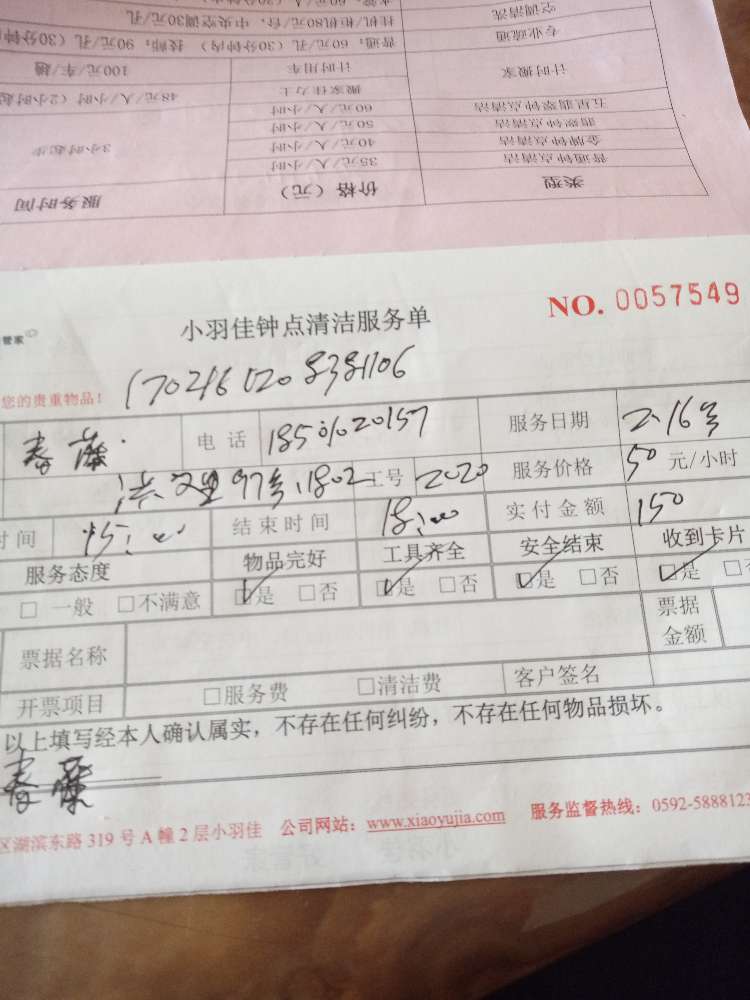 空调清洗 挂机/柜机80元/台,中央空调30元/孔
专业疏通 普通:60元/孔(30分钟内) 技师:90元/孔(30分钟
计时搬家 计时用车 100元/车/趟
搬家佳力士 48元/人/小时(2小时起
五星翡翠钟点清洁 60元/人/小时
翡翠钟点清洁 50元/人/小时
金牌钟点清洁 40元/人/小时 3小时起步
普通钟点清洁 35元/人/小时
类型 价格(元) 服务时间
管家
小羽佳钟点清洁服务单 NO. 0057549
您的贵重物品!
电话 服务日期 2.16号
97号1802 工号 2020 服务价格 50 元/小时
时间 15:00 结束时间 18:00 实付金额 150
服务态度 物品完好 工具齐全 安全结束 收到卡片
□ 一般 □不满意 □是 □否 □是 □否 □是 □否 □是
票据名称 票据金额
开票项目 □服务费 □清洁费 客户签名
以上填写经本人确认属实,不存在任何纠纷,不存在任何物品损坏。
区湖滨东路 319 号 A 幢 2 层小羽佳 公司网站:www.xiaoyujia.com 服务监督热线:0592-5888123